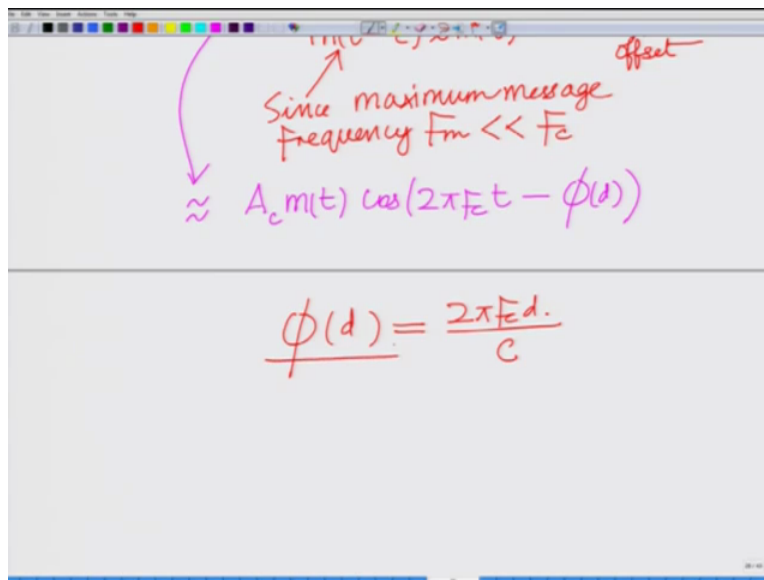 offset
Since maximum message
frequency Fm << Fc
≈ A_c m(t) cos(2πF_c t − φ(d))
φ(d) = 2πF_c d. / C